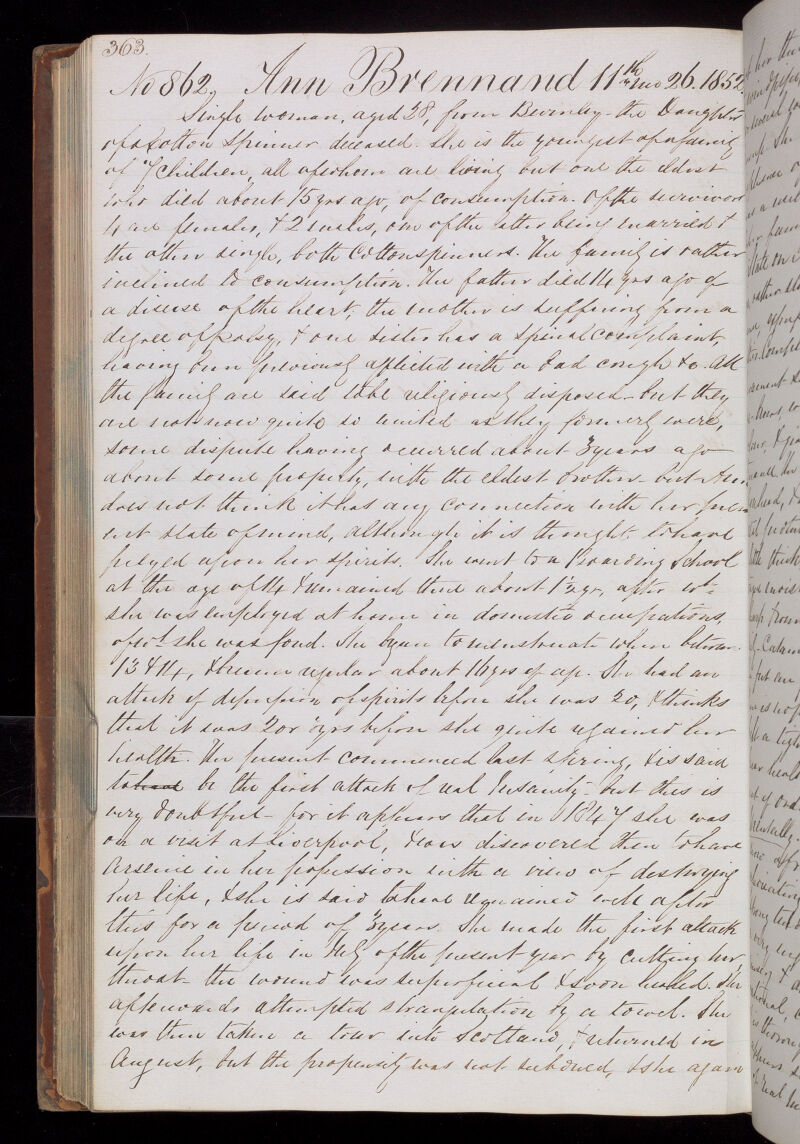 363.
No 862. Ann Brennand 11th mo 26. 1852
Single woman, aged 28, from Beverley - the Daughter
of a Cotton Spinner deceased. She is the youngest of a family
of 7 children, all of whom are living but one the eldest
who died about 15 yrs ago, of consumption. Of the survivors
4 are females, & 2 males, one of the latter being married &
the other single, both Cotton spinners. The family is rather
inclined to consumption. The father died 14 yrs ago of
a disease of the heart, the mother is suffering from a
degree of palsy, & one sister has a spinal complaint,
having been previously afflicted with a bad cough &c. All
the family are said to be religiously disposed - but they
are not now quite so united as they formerly were,
some dispute having occurred about 3 years ago
about some property, with the eldest brother - but Ann
does not think it has any connection with her pres-
ent state of mind, although it is thought to have
preyed upon her spirits. She went to a Boarding School
at the age of 14 & remained there about 1½ yr, after wh
she was employed at home in domestic occupations,
of wh she was fond. She began to menstruate when between
13 & 14, & became regular about 16 yrs of age. She had an
attack of depression of spirits before she was 20, & thinks
that it was 2 or 3 yrs before she quite regained her
health. The present commenced last spring, & is said
to have be the first attack of real Insanity - but this is
very doubtful - for it appears that in 1847 she was
on a visit at Liverpool, & was discovered then to have
Arsenic in her possession with a view of destroying
her life, & she is said to have remained well after
this for a period of 3 years. She made the first attack
upon her life in July of the present year by cutting her
throat - the wound was superficial & soon healed. She
afterwards attempted strangulation by a towel. She
was then taken a tour into Scotland, & returned in
August, but the propensity was not subdued, & she again